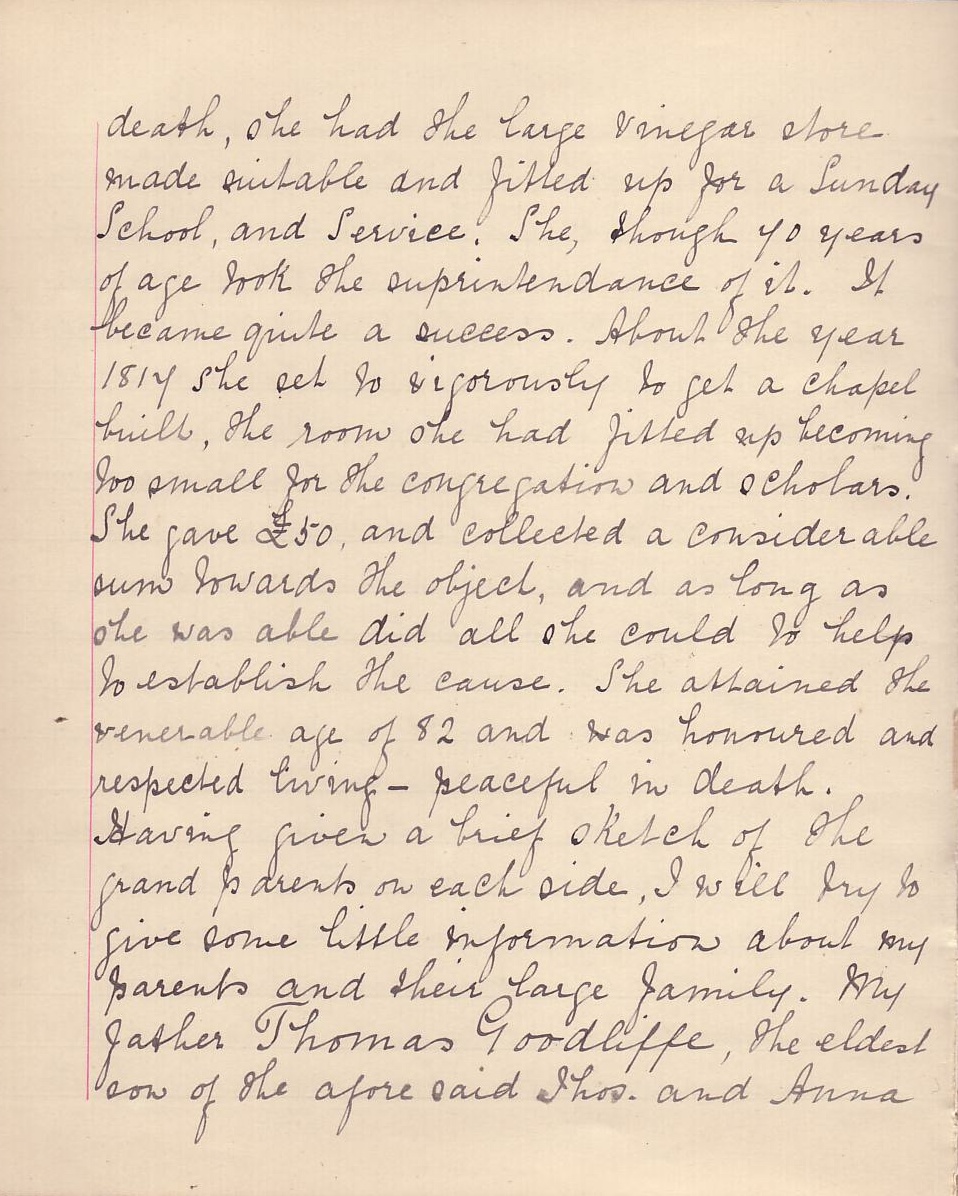 death, she had the large vinegar store
made suitable and fitted up for a Sunday
School, and Service. She, though 70 years
of age took the suprintendance of it. It
became quite a success. About the year
1817 she set to vigorously to get a chapel
built, the room she had fitted up becoming
too small for the congregation and scholars.
She gave £50, and collected a considerable
sum towards the object, and as long as
she was able did all she could to help
to establish the cause. She attained the
venerable age of 82 and was honoured and
respected living - peaceful in death.
Having given a brief sketch of the
grand parents on each side, I will try to
give some little information about my
parents and their large family. My
father Thomas Goodliffe, the eldest
son of the afore said Thos. and Anna